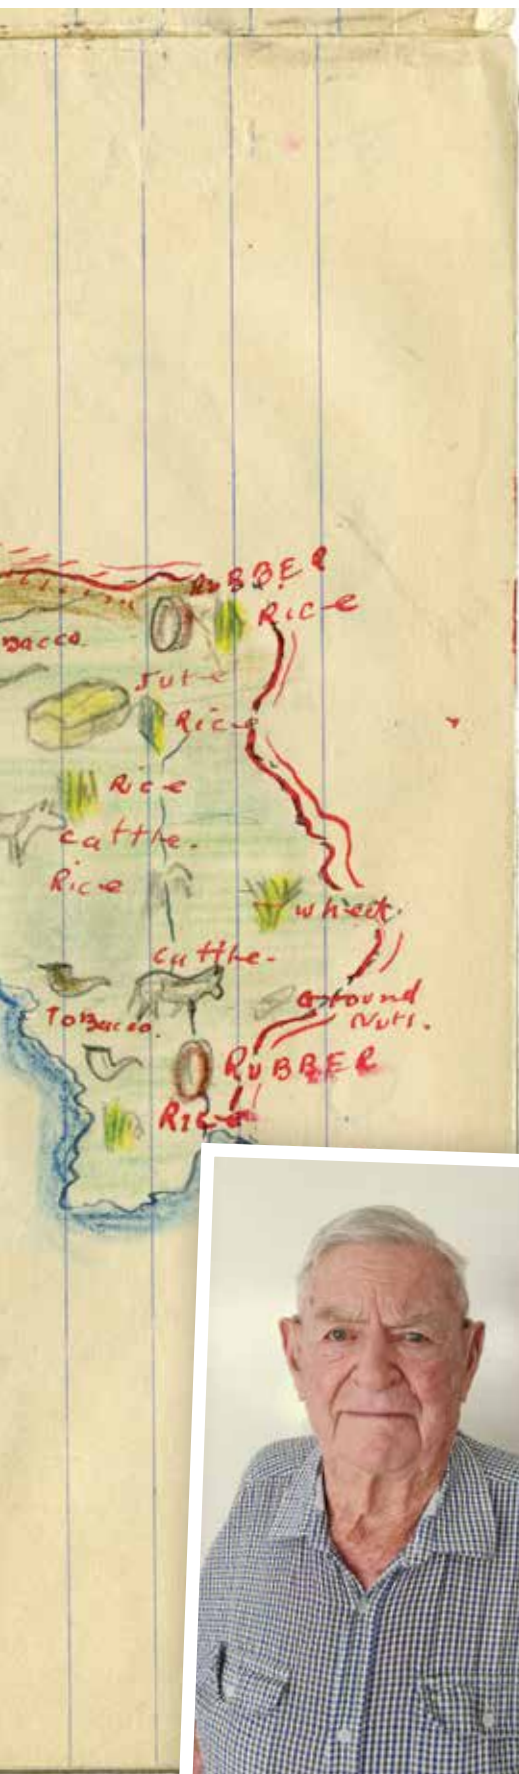 RUBBER
RicE
Bacco.
Jute
Rice
Rice
cattle.
Rice
wheet.
cattle.
Ground
Nuts.
ToBacco.
RUBBER
Rice